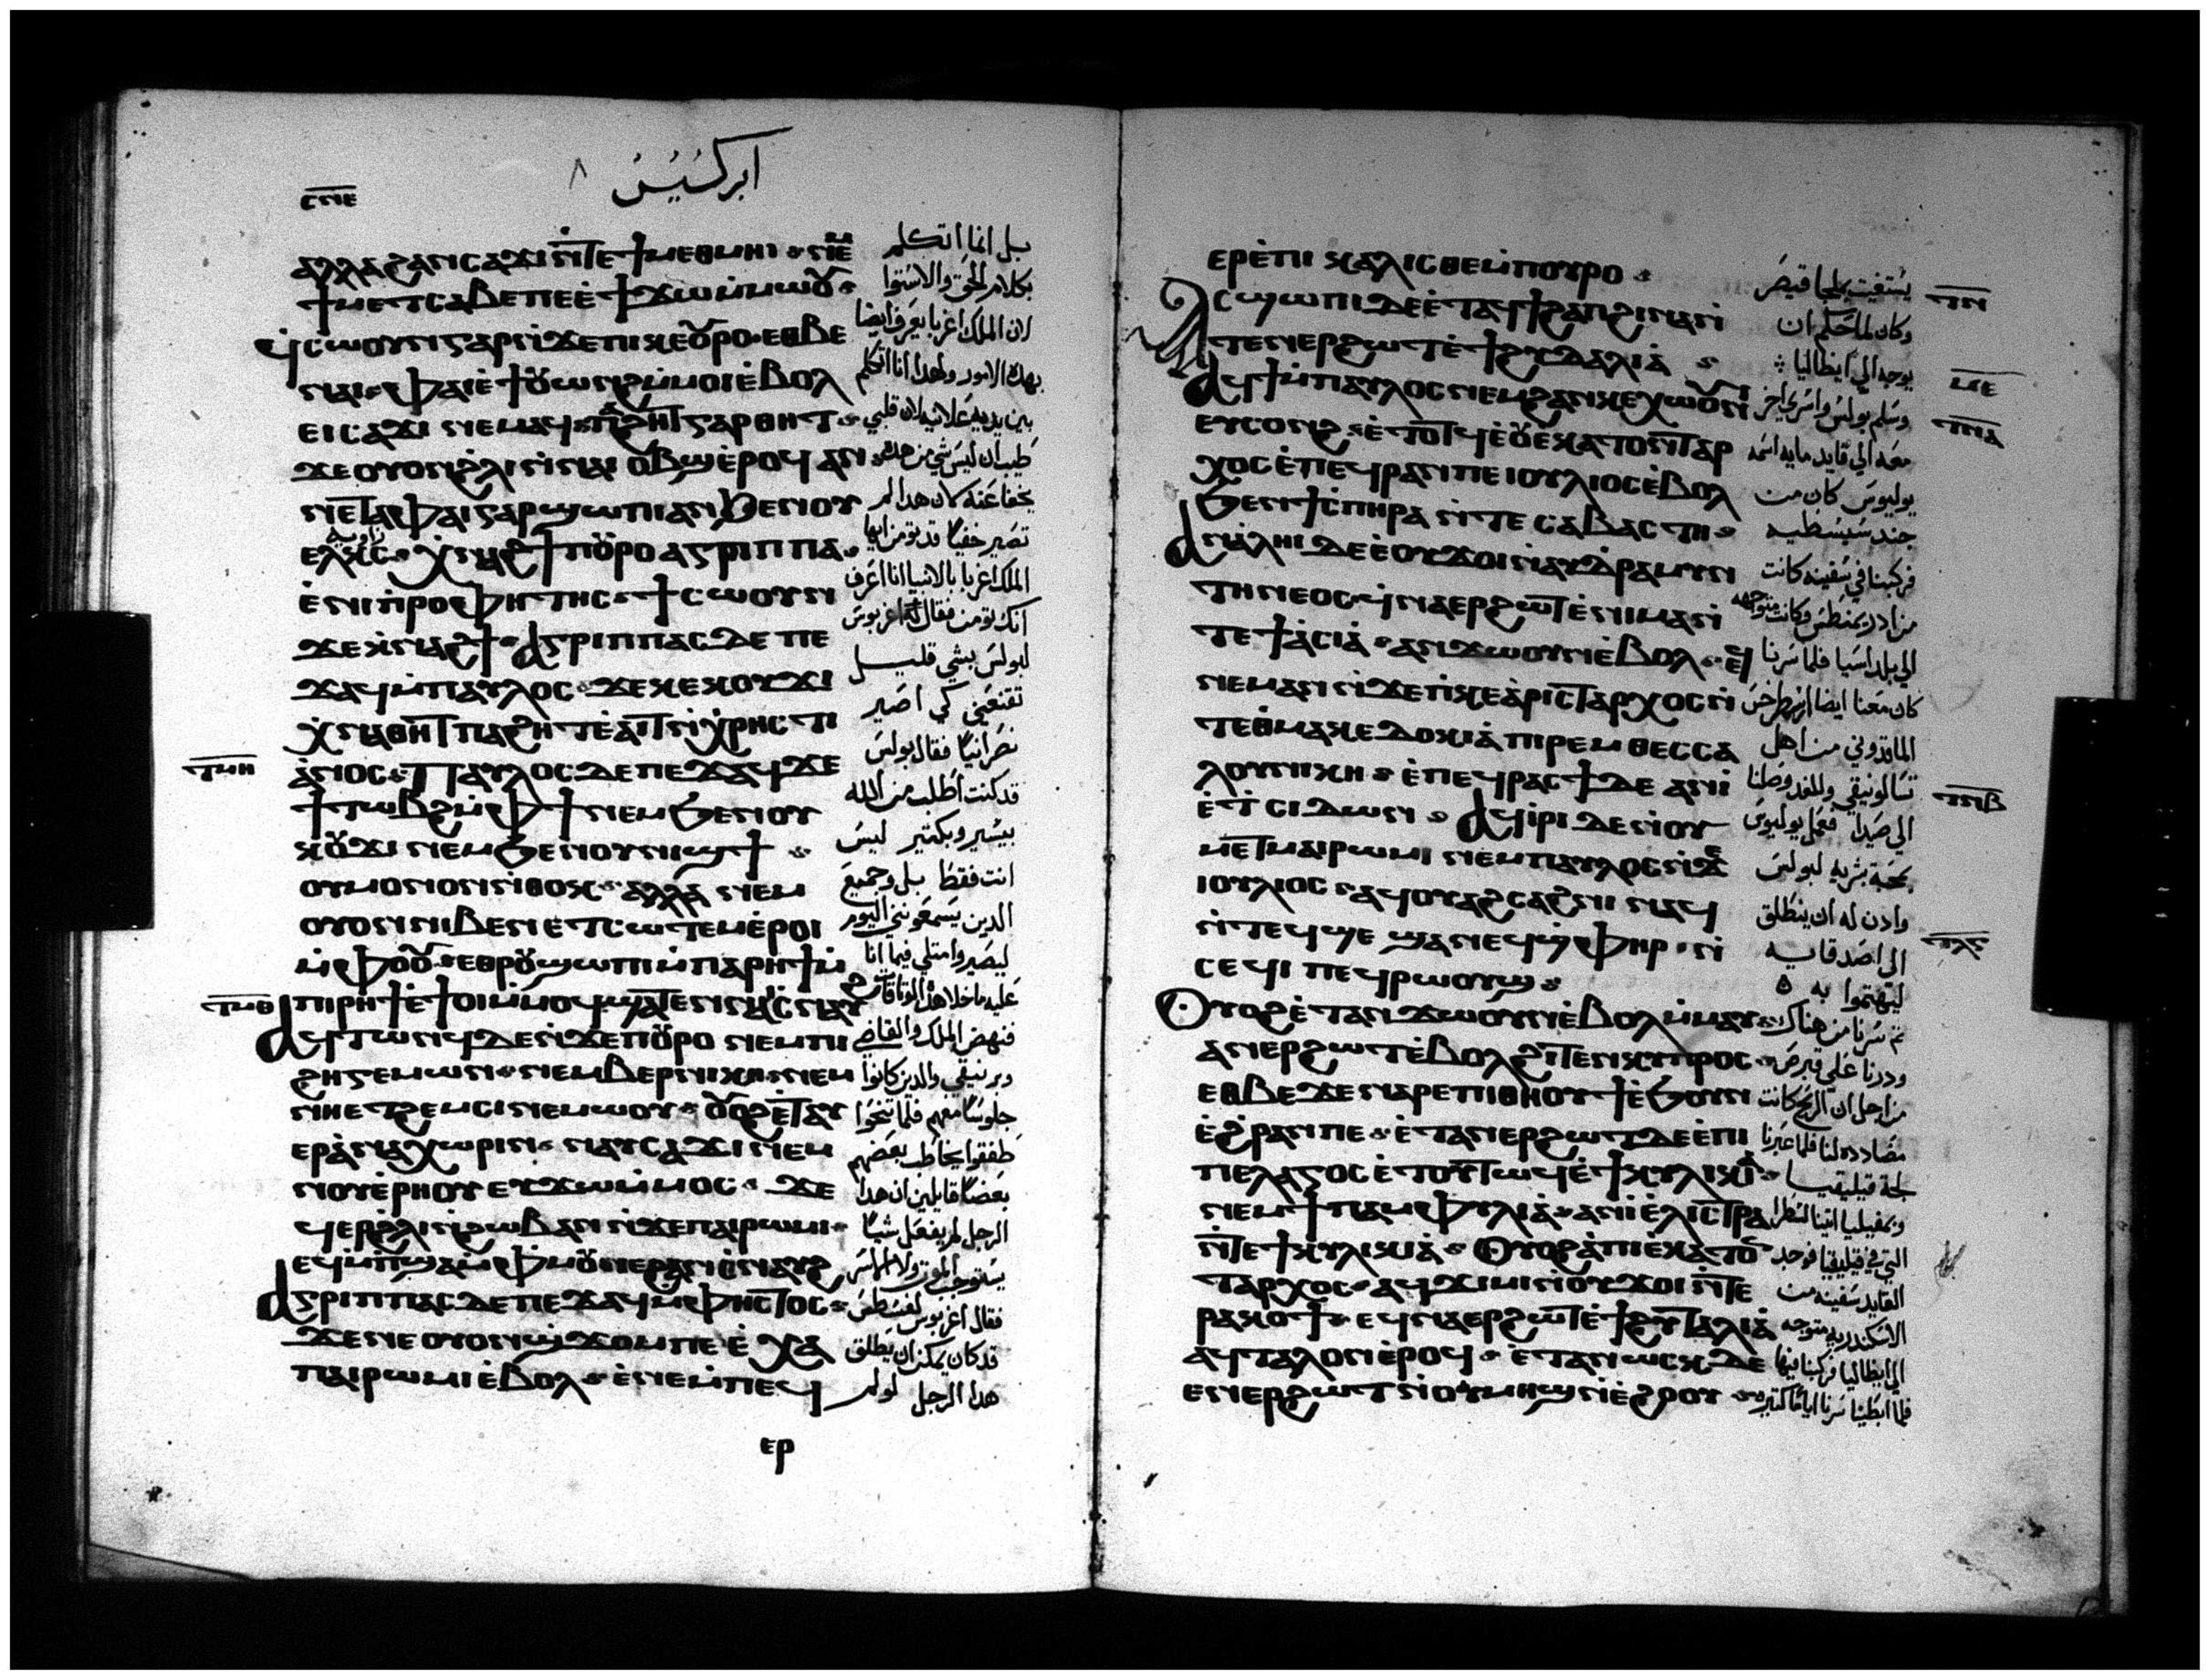 ابركسيس
ⲁⲗⲗⲁ ϩⲁⲛⲥⲁϫⲓ ⲛ̇ⲧⲉ ϯⲙⲉⲑⲙⲏⲓ ⲛⲉⲙ
ϯⲙⲉⲧⲥⲁⲃⲉ ⲡⲉ ⲉ̇ϯϫⲱ ⲙ̇ⲙⲱⲟⲩ
ϥⲥⲱⲟⲩⲛ ⲅⲁⲣ ⲛ̇ϫⲉ ⲡⲓⲕⲉⲟⲩⲣⲟ ⲉⲑⲃⲉ
ⲛⲁⲓ ⲫⲁⲓ ⲉ̇ϯⲟⲩⲱⲛϩ ⲙ̇ⲙⲟⲓ ⲉ̇ⲃⲟⲗ
ⲉⲓⲥⲁϫⲓ ⲛⲉⲙⲁϥ ⲡⲁϩⲏⲧ ⲅⲁⲣ ⲑⲏⲧ
ϫⲉ ⲟⲩⲟⲛ ϩⲗⲓ ⲛ̇ⲛⲁⲓ ⲟⲃϣ ⲉ̇ⲣⲟϥ ⲁⲛ
ⲛⲉⲧⲁ ⲫⲁⲓ ⲅⲁⲣ ϣⲱⲡⲓ ⲁⲛ ϧⲉⲛ ⲟⲩ
ⲉⲗⲕⲥ ⲭⲛⲁϩϯ ⲡⲟⲩⲣⲟ ⲁⲅⲣⲓⲡⲡⲁ
ⲉ̇ⲛⲓⲡⲣⲟⲫⲏⲧⲏⲥ ϯⲥⲱⲟⲩⲛ
ϫⲉ ⲕⲛⲁϩϯ ⲁⲅⲣⲓⲡⲡⲁⲥ ⲇⲉ ⲡⲉ
ϫⲁϥ ⲙ̇ⲡⲁⲩⲗⲟⲥ ϫⲉ ⲕⲉⲕⲟⲩϫⲓ
ⲭⲛⲁⲑⲏⲧ ⲡⲁϩⲏⲧ ⲉ̇ⲁⲓⲧ ⲛ̇ⲭⲣⲏⲥⲧⲓ
ⲁ̇ⲛⲟⲥ ⲡⲁⲩⲗⲟⲥ ⲇⲉ ⲡⲉϫⲁϥ ϫⲉ
ϯⲧⲱⲃϩ ⲙ̇ⲫϯ ⲛⲉⲙ ϧⲉⲛ ⲟⲩ
ⲕⲟⲩϫⲓ ⲛⲉⲙ ϧⲉⲛ ⲟⲩⲛⲓϣϯ
ⲟⲩⲙⲟⲛⲟⲛ ⲛ̇ⲑⲟⲕ ⲁⲗⲗⲁ ⲛⲉⲙ
ⲟⲩⲟⲛ ⲛⲓⲃⲉⲛ ⲉⲧⲥⲱⲧⲉⲙ ⲉ̇ⲣⲟⲓ
ⲙ̇ⲫⲟⲟⲩ ⲉⲑⲣⲟⲩϣⲱⲡⲓ ⲙ̇ⲡⲁⲣⲏϯ ⲙ̇
ⲡⲓⲣⲏϯ ⲉ̇ϯⲟⲓ ⲙ̇ⲙⲟϥ ϣⲁⲧⲉⲛ ⲛⲁⲓⲥⲛⲁⲩ
ⲁϥⲧⲱⲛϥ ⲇⲉ ⲛ̇ϫⲉ ⲡⲟⲩⲣⲟ ⲛⲉⲙ ⲡⲓ
ϩⲏⲅⲉⲙⲱⲛ ⲛⲉⲙ ⲃⲉⲣⲛⲓⲕⲏ ⲛⲉⲙ
ⲛⲏⲉⲧϩⲉⲙⲥⲓ ⲛⲉⲙⲱⲟⲩ ⲟⲩⲟϩ ⲉ̇ⲧⲁⲩ
ⲉⲣⲁ̇ⲛⲁⲭⲱⲣⲓⲛ ⲛⲁⲩⲥⲁϫⲓ ⲛⲉⲙ
ⲛⲟⲩⲉ̇ⲣⲏⲟⲩ ⲉⲩϫⲱ ⲙ̇ⲙⲟⲥ ϫⲉ
ϥⲉⲣϩⲗⲓ ⲛ̇ϩⲱⲃ ⲁⲛ ⲛ̇ϫⲉ ⲡⲁⲓⲣⲱⲙⲓ
ⲉϥⲙ̇ⲡϣⲁ ⲙ̇ⲫⲙⲟⲩ ⲓⲉ ϩⲁⲛⲥⲛⲁⲩϩ
ⲁⲅⲣⲓⲡⲡⲁⲥ ⲇⲉ ⲡⲉϫⲁϥ ⲙ̇ⲫⲏⲥⲧⲟⲥ
ϫⲉ ⲛⲉ ⲟⲩⲟⲛϣϫⲟⲙ ⲡⲉ ⲉ̇ⲭⲁ
ⲡⲁⲓⲣⲱⲙⲓ ⲉ̇ⲃⲟⲗ ⲉ̇ⲛⲉⲙ̇ⲡⲉϥ
ⲉⲣ
بل انما اتكلم
بكلام الحق والاستوا
لان الملك اغربا يعرف ايضا
بهذه الامور ولهذا انا اتكلم
بين يديه علانيه لان قلبي
طيب ان ليس شي من هذه
يخفا عنه لان هذا لم
تصير خفيًا قد تومن ايها
الملك اغربا بالانبيا انا اعرف
انك تومن فقال اغربوس
لبولس بشي قليل
تقنعني كي اصير
نصرانيًا فقال بولس
قد كنت اطلب من الله
بيسير وبكتير ليس
انت فقط بل وجميع
الدين يسمعونني اليوم
ليصيروا متلي فيما انا
عليه ما خلا هذا الوثاقات
فنهض الملك والقاضي
وبرنيقي والدين كانوا
جلوسًا معهم فلما تنحوا
طفقوا يخاطب بعضهم
بعضًا قايلين ان هدا
الرجل لم يفعل شيًا
يستوجب الموت ولا الاسر
فقال اغربوس لفسطس
قد كان يمكن ان يطلق
هدا الرجل لو لم
ⲧⲙⲏ
ⲧⲙⲑ
ⲉⲣⲉ̇ⲡⲓⲕⲁⲗⲓⲥⲑⲉ ⲙ̇ⲡⲟⲩⲣⲟ
ⲁⲥϣⲱⲡⲓ ⲇⲉ ⲉ̇ⲧⲁϥϯϩⲁⲡ ϩⲓⲛⲁ ⲛ̇
ⲧⲉⲛⲉⲣϩⲱⲧ ⲉ̇ϯϩⲩⲇⲁⲗⲓⲁ̇
ⲁϥϯ ⲙ̇ⲡⲁⲩⲗⲟⲥ ⲛⲉⲙ ϩⲁⲛⲕⲉⲭⲱⲟⲩⲛⲓ
ⲉⲩⲥⲟⲛϩ ⲉ̇ⲧⲟⲧϥ ⲉ̇ⲟⲩⲉⲕⲁⲧⲟⲛⲧⲁⲣ
ⲭⲟⲥ ⲉ̇ⲡⲉϥⲣⲁⲛ ⲡⲉ ⲓⲟⲩⲗⲓⲟⲥ ⲉ̇ⲃⲟⲗ
ϧⲉⲛ ϯⲥ̇ⲡⲏⲣⲁ ⲛ̇ⲧⲉ ⲥⲁⲃⲁⲥⲧⲏ
ⲁⲛⲁ̇ⲗⲏⲓ ⲇⲉ ⲉ̇ⲟⲩϫⲟⲓ ⲛ̇ⲁⲩⲇⲣⲁⲙⲩⲛ
ⲧⲏⲛⲉⲟⲥ ϥⲛⲁⲉⲣϩⲱⲧ ⲉ̇ⲛⲓⲙⲁ ⲛ̇
ⲧⲉ ϯⲁ̇ⲥⲓⲁ̇ ⲁⲛϫⲱⲟⲩⲛ ⲉ̇ⲃⲟⲗ ⲉϥ
ⲛⲉⲙⲁⲛ ⲛ̇ϫⲉ ⲡⲓⲕⲉⲁ̇ⲣⲓⲥⲧⲁⲣⲭⲟⲥ ⲛ̇
ⲧⲉ ⲑⲙⲁⲕⲉⲇⲟⲕⲓⲁ̇ ⲡⲓⲣⲉⲙ ⲑⲉⲥⲥⲁ
ⲗⲟⲩⲛⲓⲕⲏ ⲉ̇ⲡⲉϥⲣⲁⲥϯ ⲇⲉ ⲁⲛⲓ̇
ⲉ̇ϯⲥⲓⲇⲱⲛ ⲁϥⲓ̇ⲣⲓ ⲇⲉ ⲛ̇ⲟⲩ
ⲙⲉⲧⲙⲁⲓⲣⲱⲙⲓ ⲛⲉⲙ ⲡⲁⲩⲗⲟⲥ ⲛ̇ϫⲉ
ⲓⲟⲩⲗⲓⲟⲥ ⲁϥⲟⲩⲁϩⲥⲁϩⲛⲓ ⲛⲁϥ
ⲛ̇ⲧⲉϥϣⲉ ϣⲁ ⲛⲉϥϣ̇ⲫⲏⲣ ⲛ̇
ⲥⲉϥⲓ ⲡⲉϥⲣⲱⲟⲩϣ
ⲟⲩⲟϩ ⲉ̇ⲧⲁⲛϫⲱⲟⲩⲛ ⲉ̇ⲃⲟⲗ ⲙ̇ⲙⲁⲩ
ⲁⲛⲉⲣϩⲱⲧ ⲉ̇ⲃⲟⲗ ϩⲓⲧⲉⲛ ⲕⲩⲡⲣⲟⲥ
ⲉⲑⲃⲉ ϫⲉ ⲛⲁⲣⲉ ⲡⲓⲑⲏⲟⲩ ϯ ⲉ̇ϧⲟⲩⲛ
ⲉ̇ϩ̇ⲣⲁⲛ ⲡⲉ ⲉ̇ⲧⲁⲛⲉⲣϩⲱⲧ ⲇⲉ ⲉ̇ⲡⲓ
ⲡⲉⲗⲁⲅⲟⲥ ⲉ̇ⲧⲟⲩⲧⲱϥ ⲉ̇ϯⲕⲩⲗⲓⲕⲓⲁ
ⲛⲉⲙ ϯⲡⲁⲙⲫⲩⲗⲓⲁ̇ ⲁⲛⲓ̇ ⲉ̇ⲗⲓⲥⲧⲣⲁ
ⲛ̇ⲧⲉ ϯⲕⲩⲗⲓⲕⲓⲁ̇ ⲟⲩⲟϩ ⲁ̇ⲡⲓⲉ̇ⲕⲁⲧⲟⲛ
ⲧⲁⲣⲭⲟⲥ ⲁϥϫⲓⲙⲓ ⲛ̇ⲟⲩϫⲟⲓ ⲛ̇ⲧⲉ
ⲣⲁⲕⲟϯ ⲉϥⲛⲁⲉⲣϩⲱⲧ ⲉ̇ϯϩⲩⲧⲁⲗⲓⲁ̇
ⲁϥⲧⲁⲗⲟⲛ ⲉ̇ⲣⲟϥ ⲉ̇ⲧⲁⲛⲱⲥⲕ ⲇⲉ
ⲉⲛⲉⲣϩⲱⲧ ⲛ̇ⲟⲩⲙⲏϣ ⲛ̇ⲉ̇ϩⲟⲟⲩ
يستغيت بملجا قيصر
وكان لما حكم ان
يوجه الي ايطاليا
وسلم بولس واسرى اخر
معه الي قايد مايه اسمه
يوليوس كان من
جند سبسطيه
فركبنا في سفينه كانت
من ادريمنطس وكانت متوجهه
الي بلد اسيا فلما سرنا
كان معنا ايضا ارسطرخس
الماقدوني من اهل
تسالونيقي وللغد وصلنا
الى صيدا فعمل يوليوس
محبه بشريه لبولس
وادن له ان ينطلق
الى اصدقايه
ليهتموا به
تم سرنا من هناك
ودرنا على قبرص
من اجل ان الريح كانت
مضادده لنا فلما عبرنا
لجة قيليقيا
وبمفيليا اتينا لسطرا
التي في قيليقيا فوجد
القايد سفينه من
الاسكندريه متوجهه
الي ايطاليا فركبنا فيها
فلما ابطينا سرنا ايامًا كتيره
ⲧⲛ
ⲙⲉ
ⲧⲛⲁ
ⲧⲛⲃ